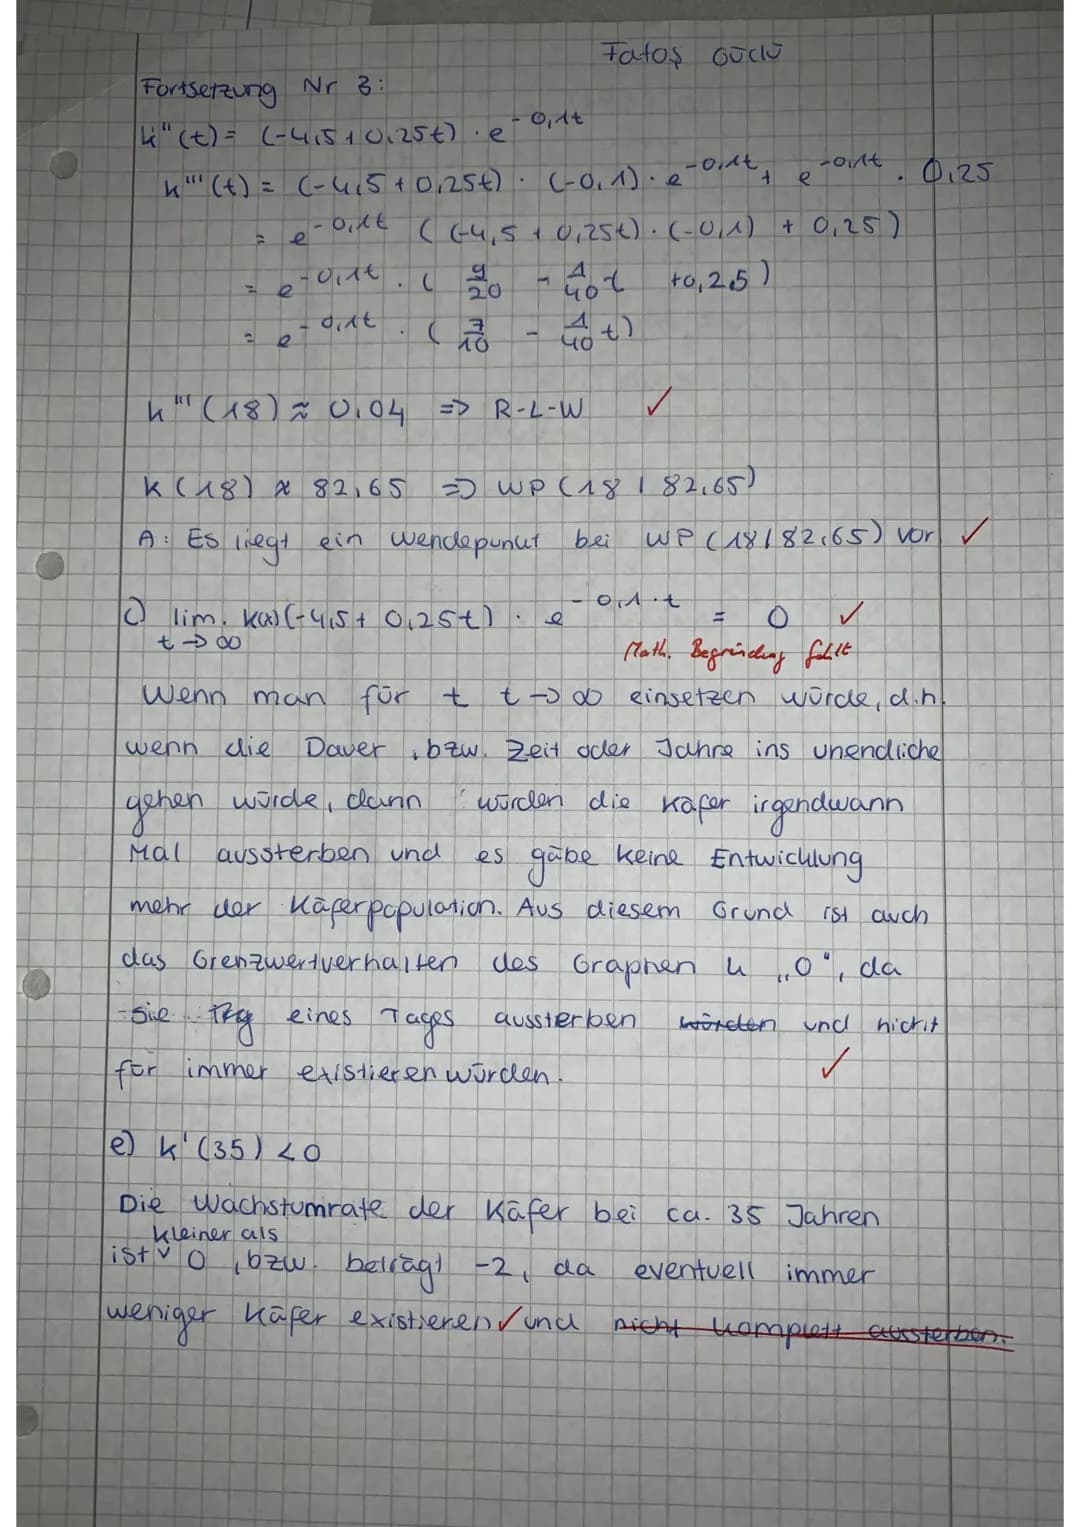 Fatoş Güclü
Fortsetzung Nr 3:
k"(t) = (-4,5+0,25t) · e^-0,1t
k'''(t) = (-4,5+0,25t) · (-0,1) · e^-0,1t + e^-0,1t · 0,25
= e^-0,1t ((-4,5+0,25t) · (-0,1) + 0,25)
= e^-0,1t · (9/20 - 1/40 t +0,25)
= e^-0,1t · (7/10 - 1/40 t)
k'''(18) ≈ 0,04 => R-L-W ✓
k(18) ≈ 82,65 => WP(18 | 82,65)
A: Es liegt ein Wendepunkt bei WP(18|82,65) vor ✓
c) lim. k(x)(-4,5+ 0,25t) · e^-0,1·t = 0 ✓
t→∞
Math. Begründung fehlt
Wenn man für t t→∞ einsetzen würde, d.h.
wenn die Dauer, bzw. Zeit oder Jahre ins unendliche
gehen würde, dann würden die Käfer irgendwann
Mal aussterben und es gäbe keine Entwicklung
mehr der Käferpopulation. Aus diesem Grund ist auch
das Grenzwertverhalten des Graphen k „0", da
sie eines Tages aussterben würden und nicht
für immer existieren würden. ✓
e) k'(35) <0
Die Wachstumrate der Käfer bei ca. 35 Jahren
kleiner als
ist ˅ 0, bzw. beträgt -2, da eventuell immer
weniger Käfer existieren ✓ und nicht komplett aussterben.